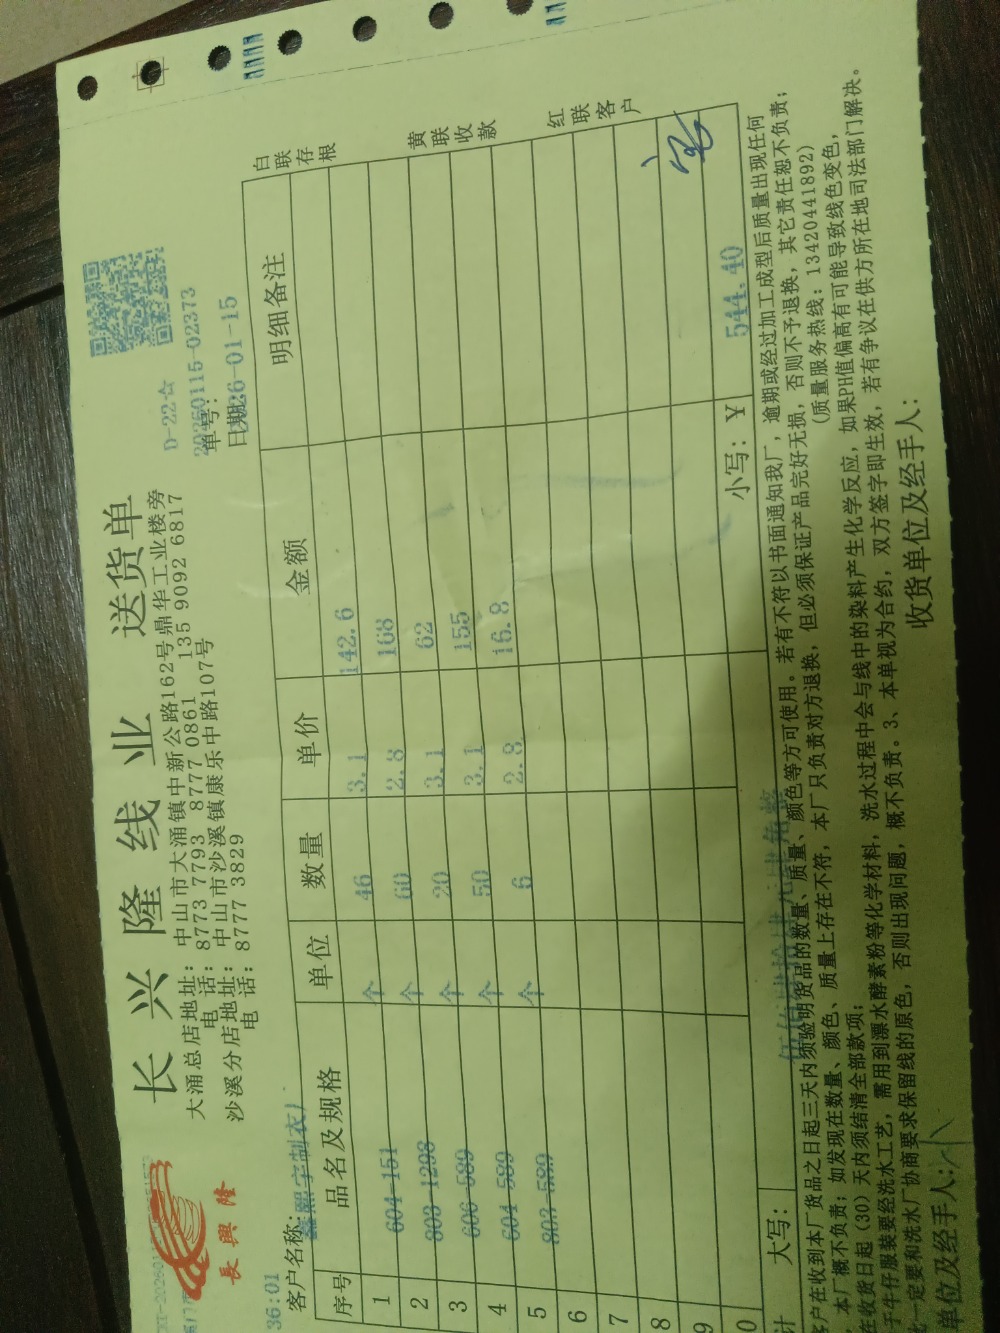 長興隆
长兴隆线业 送货单
大涌总店地址: 中山市大涌镇中新公路162号鼎华工业楼旁
电 话: 8773 7793 8777 0861 135 9092 6817
沙溪分店地址: 中山市沙溪镇康乐中路107号
电 话: 8777 3829
D-22☆
单号: 20260115-02373
日期: 2026-01-15
36:01
客户名称:
序号 品名及规格 单位 数量 单价 金额 明细备注
1 604-151 个 46 3.1 142.6
2 803-1298 个 60 2.8 168
3 606-589 个 20 3.1 62
4 604-589 个 50 3.1 155
5 803-589 个 6 2.8 16.8
6
7
8
9
0
计 大写: 小写: ¥ 544.40
白联存根
黄联收款
红联客户
客户在收到本厂货品之日起三天内须验明货品的数量、质量、颜色等方可使用。若有不符以书面通知我厂, 逾期或经过加工成型后质量出现任何
本厂概不负责; 如发现在数量、颜色、质量上存在不符, 本厂只负责对方退换, 但必须保证产品完好无损, 否则不予退换, 其它责任恕不负责;
在收货日起(30)天内须结清全部款项; (质量服务热线: 13420441892)
于牛仔服装要经洗水工艺, 需用到漂水酵素粉等化学材料, 洗水过程中会与线中的染料产生化学反应, 如果PH值偏高有可能导致线色变色,
一定要和洗水厂协商要求保留线的原色, 否则出现问题, 概不负责。3、本单视为合约, 双方签字即生效, 若有争议在供方所在地司法部门解决。
单位及经手人: 收货单位及经手人: